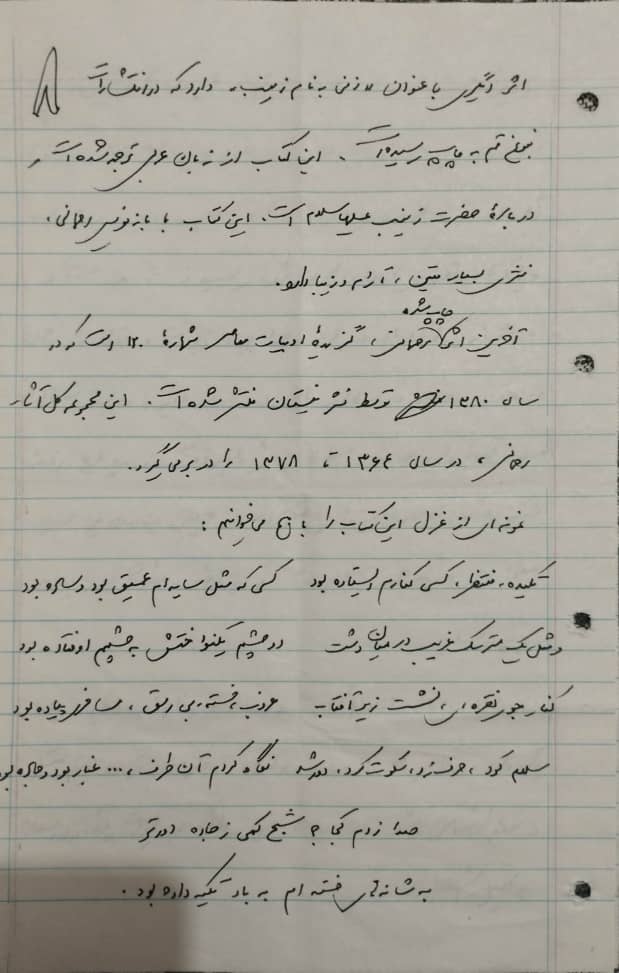 اثر دیگری با عنوان «زنی به نام زینب» دارد که در انتشارات
نبوغ قم به چاپ رسیده است. این کتاب از زبان عربی ترجمه شده است و
درباره حضرت زینب علیها سلام است. این کتاب با بازنویسی رحمانی،
نثری بسیار متین، آرام و زیبا دارد.
چاپ شده
آخرین اثر رحمانی، گزیدهٔ ادبیات معاصر شمارهٔ ۱۲۰ است که در
سال ۱۳۸۰ توسط نشر نیستان منتشر شده است. این مجموعه کل آثار
رحمانی، در سال ۱۳۶۴ تا ۱۳۷۸ را در بر می گیرد.
نمونه ای از غزل این کتاب را با هم می خوانیم:
تکیده، منتظر، کسی کنارم ایستاده بود کسی که مثل سایه ام عمیق بود و ساده بود
و مثل یک مترسک غریب در میان دشت دو چشم یکنواختش به چشمم اوفتاده بود
کنار جوی نقره ای، نشست زیر آفتاب غریب، خسته، بی رمق، مسافر پیاده بود
سلام کرد، حرف زد، سکوت کرد، دور شد نگاه کردم آن طرف، ... غبار بود و جاده بود
صدا زدم کجا؟ شبح کمی ز جاده دورتر
به شانه های خسته ام به باد تکیه داده بود.